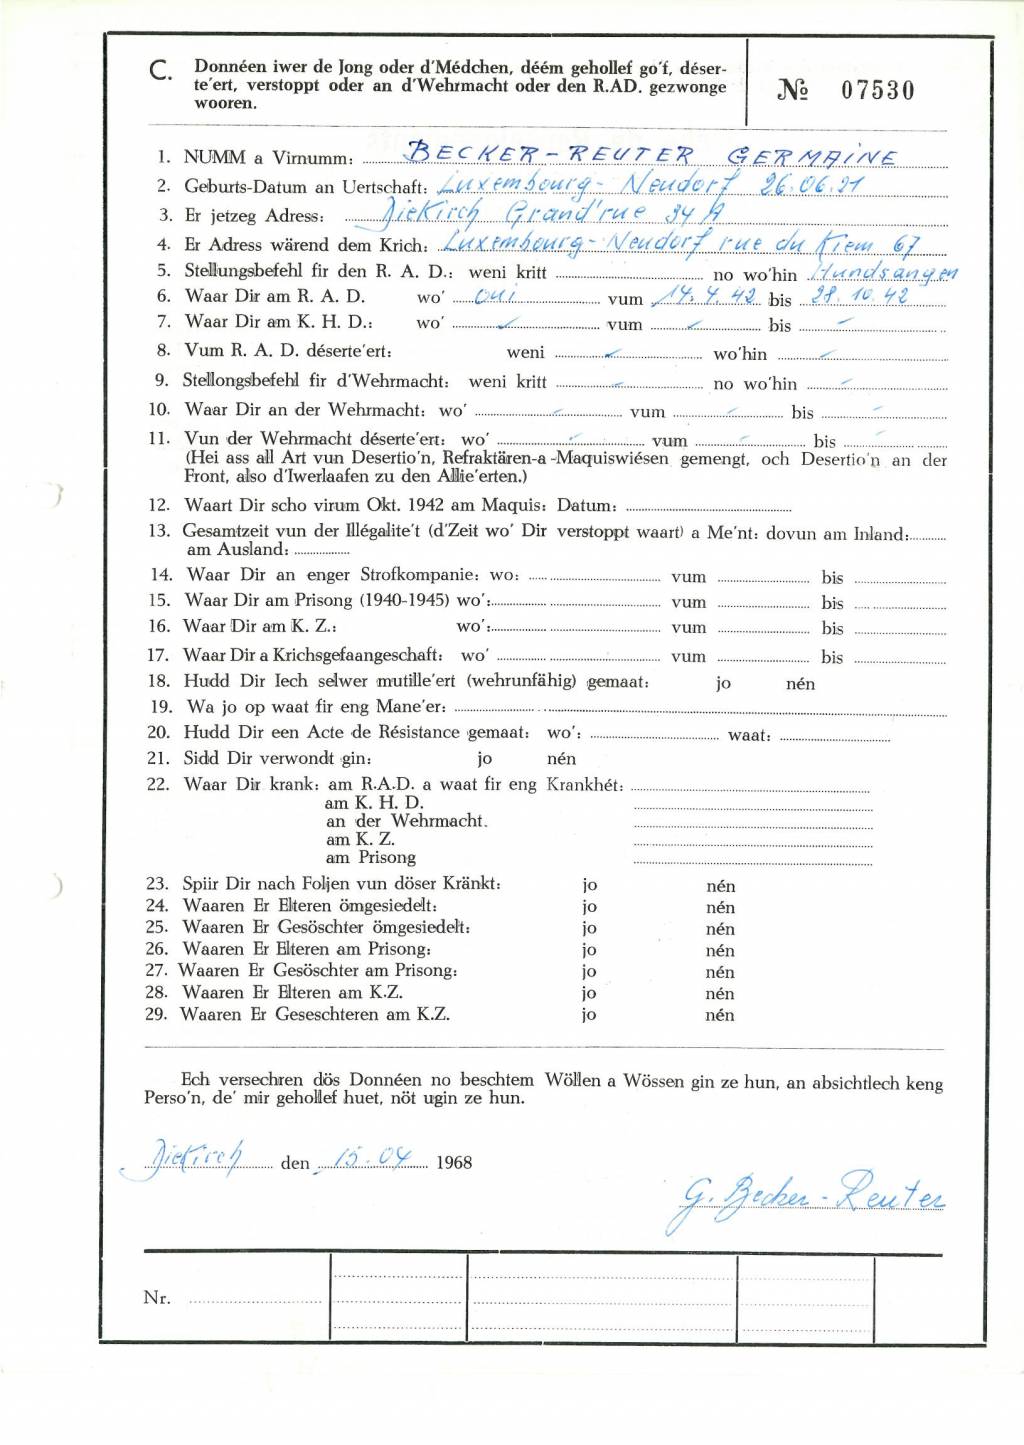 C. Donnéen iwer de Jong oder d'Médchen, déém gehollef go'f, déser-
te'ert, verstoppt oder an d'Wehrmacht oder den R.AD. gezwonge
wooren.
№ 07530
1. NUMM a Virnumm: BECKER-REUTER GERMAINE
2. Geburts-Datum an Uertschaft: Luxembourg-Neudorf 26.06.21
3. Er jetzeg Adress: Diekirch Grand'rue 34 A
4. Er Adress wärend dem Krich: Luxembourg-Neudorf rue du Kiem 67
5. Stellungsbefehl fir den R. A. D.: weni kritt no wo'hin Hundsangen
6. Waar Dir am R. A. D. wo' oui vum 14.4.42 bis 28.10.42
7. Waar Dir am K. H. D.: wo' vum bis
8. Vum R. A. D. déserte'ert: weni wo'hin
9. Stellongsbefehl fir d'Wehrmacht: weni kritt no wo'hin
10. Waar Dir an der Wehrmacht: wo' vum bis
11. Vun der Wehrmacht déserte'ert: wo' vum bis
(Hei ass all Art vun Desertio'n, Refraktären-a -Maquiswiésen gemengt, och Desertio'n an der
Front, also d'Iwerlaafen zu den Allie'erten.)
12. Waart Dir scho virum Okt. 1942 am Maquis: Datum:
13. Gesamtzeit vun der Illégalite't (d'Zeit wo' Dir verstoppt waart) a Me'nt: dovun am Inland:
am Ausland:
14. Waar Dir an enger Strofkompanie: wo: vum bis
15. Waar Dir am Prisong (1940-1945) wo': vum bis
16. Waar Dir am K. Z.: wo': vum bis
17. Waar Dir a Krichsgefaangeschaft: wo' vum bis
18. Hudd Dir Iech selwer mutille'ert (wehrunfähig) gemaat: jo nén
19. Wa jo op waat fir eng Mane'er:
20. Hudd Dir een Acte de Résistance gemaat: wo': waat:
21. Sidd Dir verwondt gin: jo nén
22. Waar Dir krank: am R.A.D. a waat fir eng Krankhét:
am K. H. D.
an der Wehrmacht.
am K. Z.
am Prisong
23. Spiir Dir nach Foljen vun döser Kränkt: jo nén
24. Waaren Er Elteren ömgesiedelt: jo nén
25. Waaren Er Gesöschter ömgesiedelt: jo nén
26. Waaren Er Elteren am Prisong: jo nén
27. Waaren Er Gesöschter am Prisong: jo nén
28. Waaren Er Elteren am K.Z. jo nén
29. Waaren Er Geseschteren am K.Z. jo nén
Ech versechren dös Donnéen no beschtem Wöllen a Wössen gin ze hun, an absichtlech keng
Perso'n, de' mir gehollef huet, nöt ugin ze hun.
Diekirch den 15.04 1968
G. Becker-Reuter
Nr.